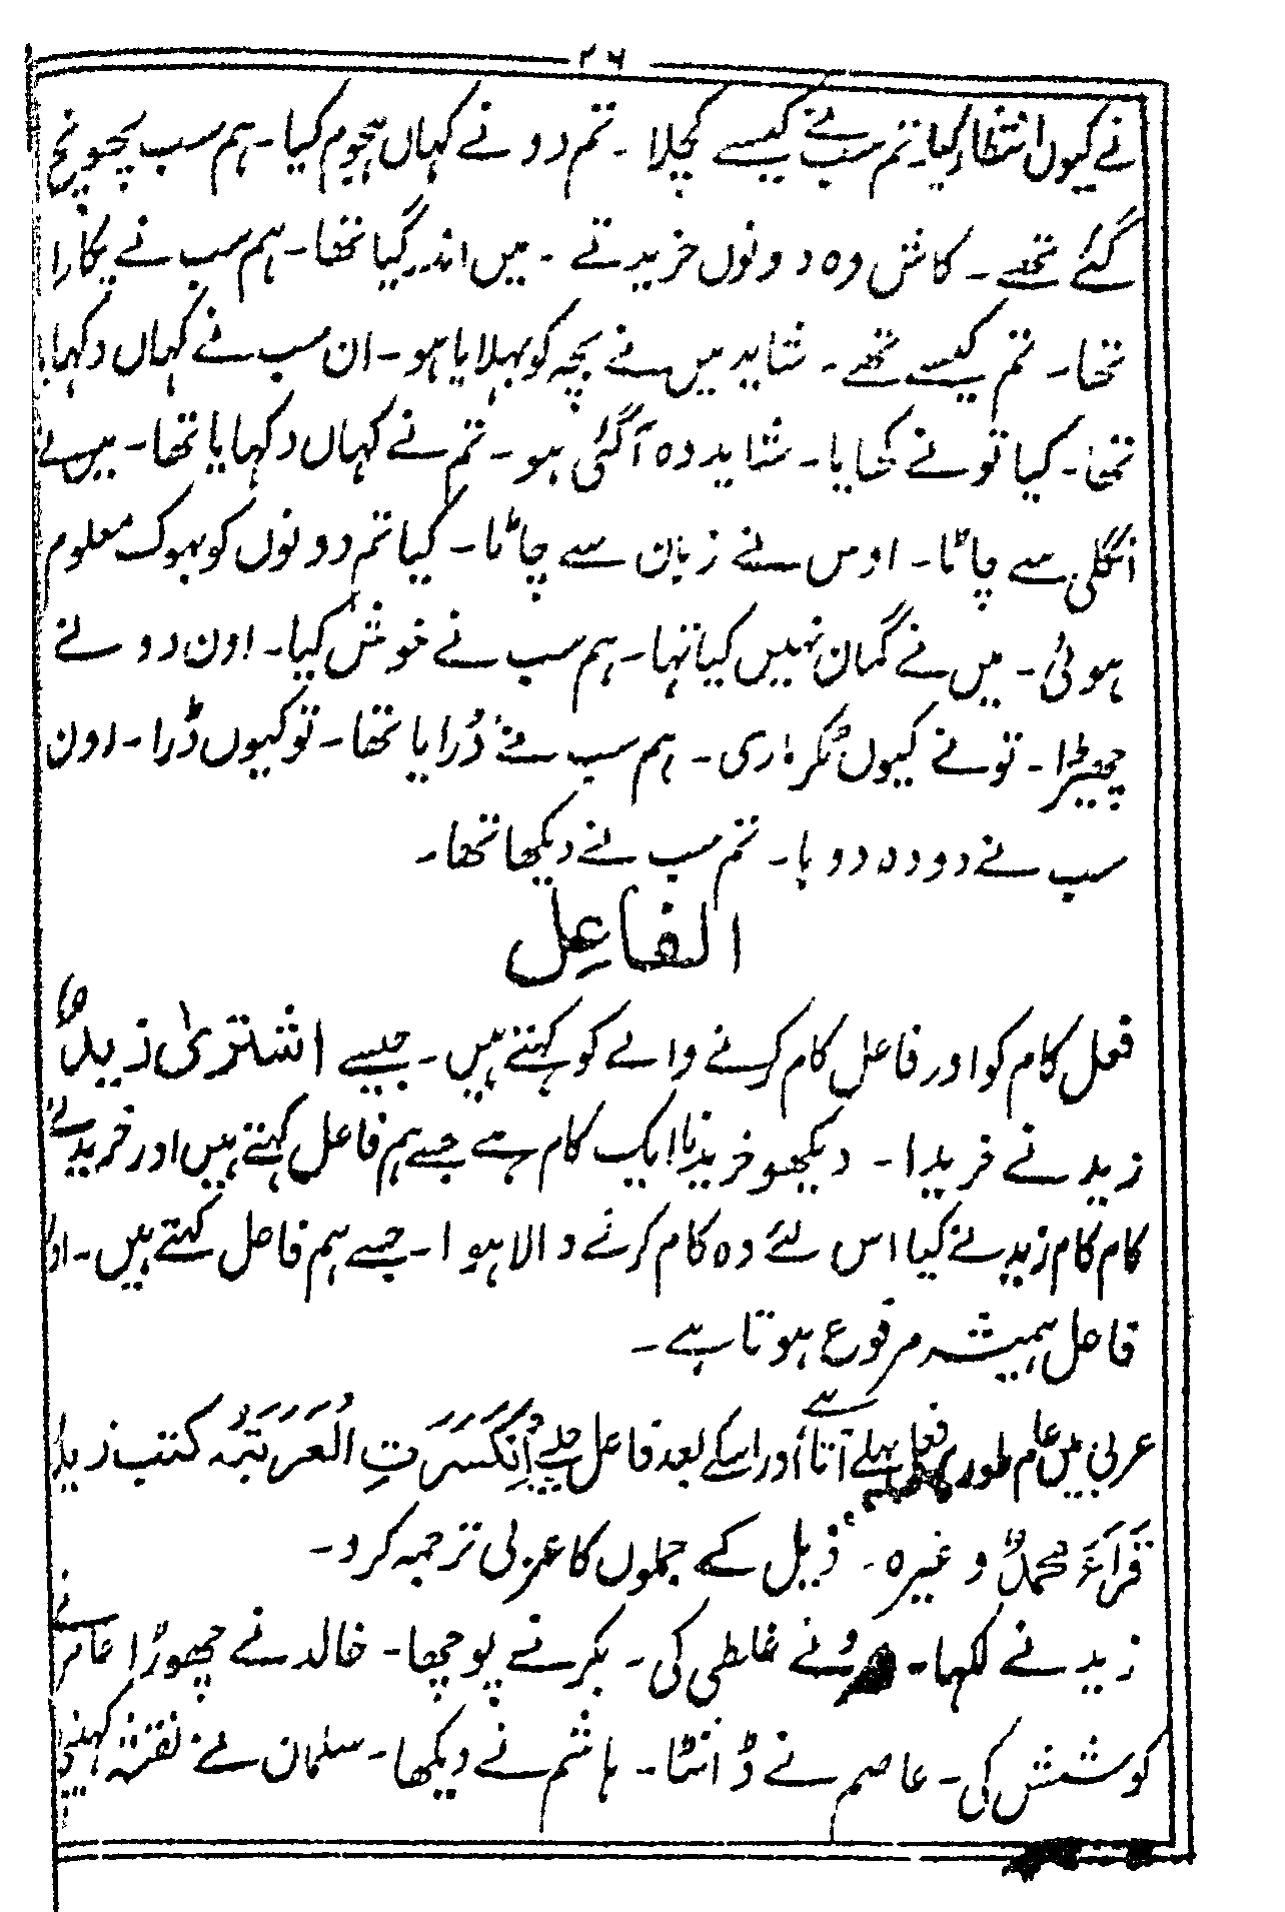 ۲۶
نے کیوں انتظار کیا۔ تم سب نے کیسے کچلا ۔ تم دو نے کہاں ہجوم کیا ۔ ہم سب پہونچ
گئے تھے ۔ کاش وہ دونوں خریدتے ۔ میں اندر گیا تھا ۔ ہم سب نے پکارا
تھا ۔ تم کیسے تھے ۔ شاید میں نے بچہ کو بہلایا ہو ۔ ان سب نے کہاں دکہایا
تھا ۔ کیا تو نے کھایا ۔ شاید وہ آگئی ہو ۔ تم نے کہاں دکہایا تھا ۔ میں نے
انگلی سے چاٹا ۔ اوس نے زبان سے چاٹا ۔ کیا تم دونوں کو بھوک معلوم
ہوئی ۔ میں نے گمان نہیں کیا تہا ۔ ہم سب نے خوش کیا ۔ اون دو نے
چھیڑا ۔ تو نے کیوں ٹکر ماری ۔ ہم سب نے ڈرایا تھا ۔ تو کیوں ڈرا ۔ اون
سب نے دودہ دوہا ۔ تم سب نے دیکھا تھا ۔
الفاعِل
فعل کام کو اور فاعل کام کرنے والے کو کہتے ہیں ۔ جیسے اشتریٰ زیدٌ
زید نے خریدا ۔ دیکھو خریدنا ایک کام ہے جسے ہم فاعل کہتے ہیں اور خریدنے
کام کام زید نے کیا اس لئے وہ کام کرنے والا ہوا ۔ جسے ہم فاعل کہتے ہیں ۔ اور
فاعل ہمیشہ مرفوع ہوتا ہے ۔
عربی میں عام طور پر فعل پہلے آتا ہے اور اسکے بعد فاعل جیسے اِنْکَسَرَتِ الْعَرَبَۃُ کتب زیدٌ
قَرَاَءَ محمدٌ وغیرہ ۔ ذیل کے جملوں کا عربی ترجمہ کرو ۔
زید نے لکہا ۔ نے غلطی کی ۔ بکر نے پوچھا ۔ خالد نے چھوڑا عامر نے
کوشش کی ۔ عاصم نے ڈانٹا ۔ ہاشم نے دیکھا ۔ سلمان نے نقشہ کہینچا